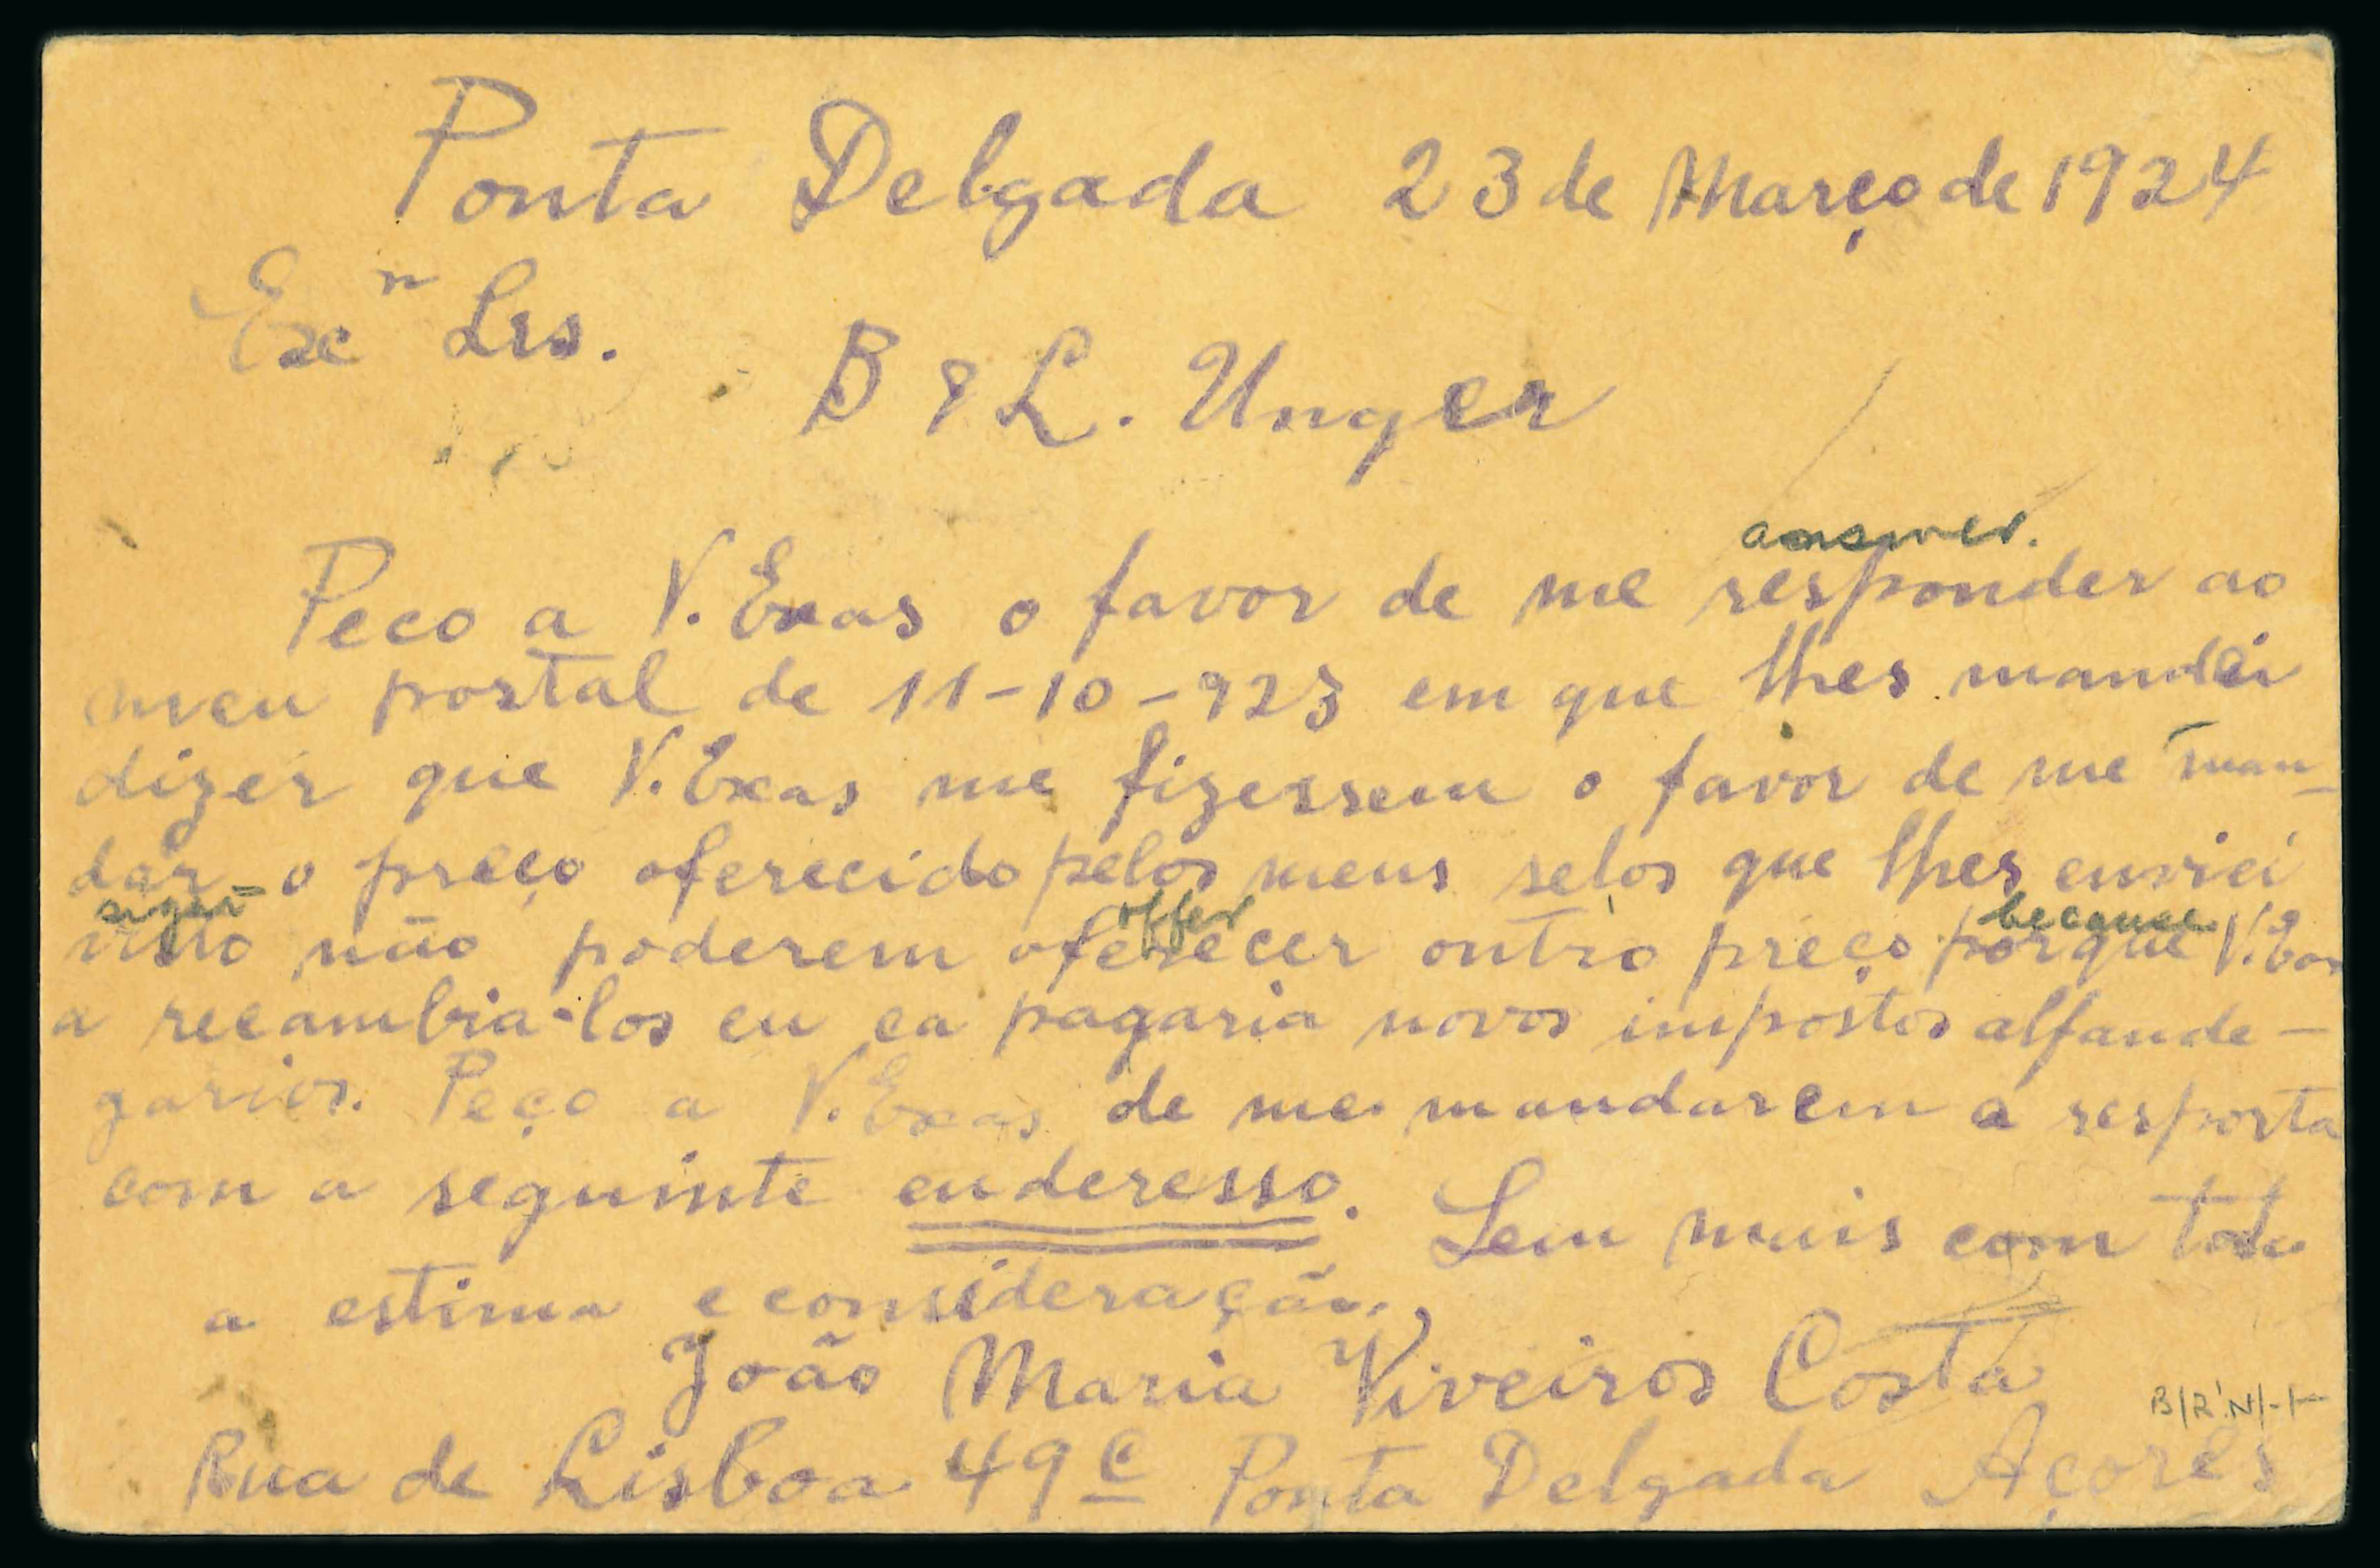 Ponta Delgada 23 de Março de 1924
Exc m Srs.
B & L. Unger
answer.
Peco a V. Exas o favor de me responder ao
meu postal de 11-10-923 em que lhes mandei
dizer que V. Excas me fizessem o favor de me man-
dar o preço oferecido pelos meus selos que lhes enviei
offer because
visto não poderem oferecer outro preço porque V. Exas
a recambia-los eu ca pagaria novos impostos alfande-
garios. Peço a V. Excas de me mandarem a resposta
com a seguinte enderesso. Sem mais com toda
a estima e consideração,
João Maria Viveiros Costa
B/R'N/-/-
Rua de Lisboa 49 C Ponta Delgada Açores